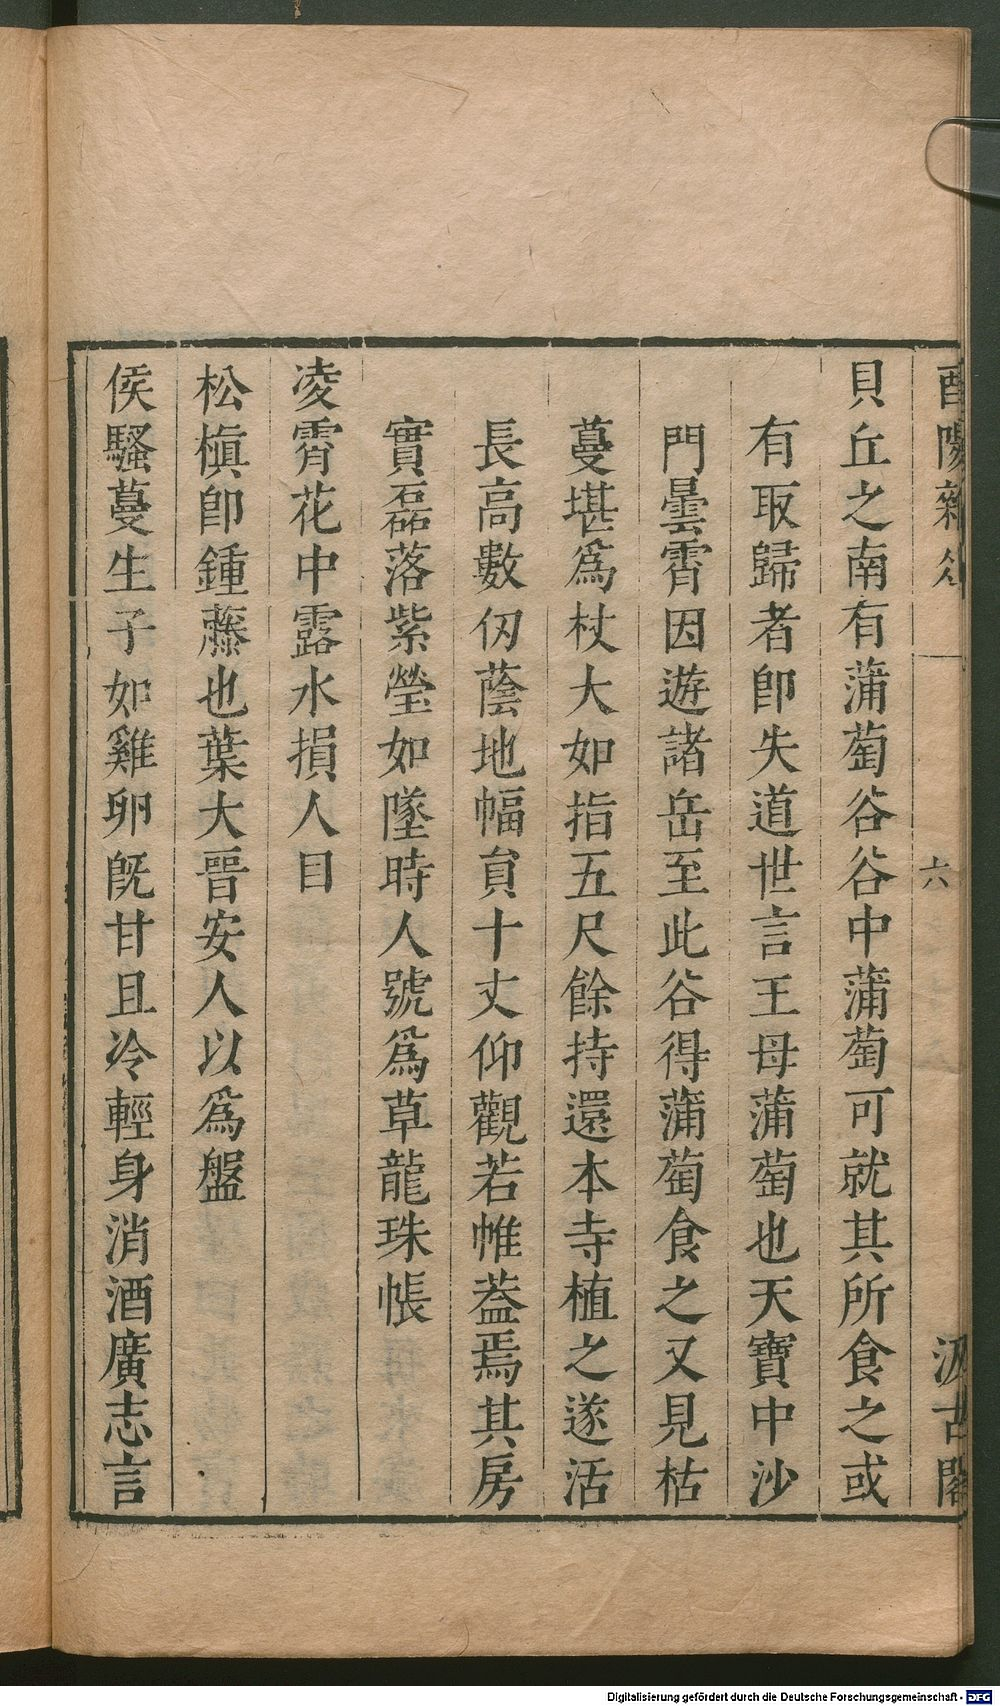 酉陽雜俎 六 汲古閣
貝丘之南有蒲萄谷谷中蒲萄可就其所食之或
有取歸者卽失道世言王母蒲萄也天寶中沙
門曇霄因遊諸岳至此谷得蒲萄食之又見枯
蔓堪爲杖大如指五尺餘持還本寺植之遂活
長高數仞蔭地幅員十丈仰觀若帷葢焉其房
實磊落紫瑩如墜時人號爲草龍珠帳
凌霄花中露水損人目
松楨卽鍾藤也葉大晉安人以爲盤
侯騷蔓生子如雞卵旣甘且冷輕身消酒廣志言
Digitalisierung gefördert durch die Deutsche Forschungsgemeinschaft - DFG